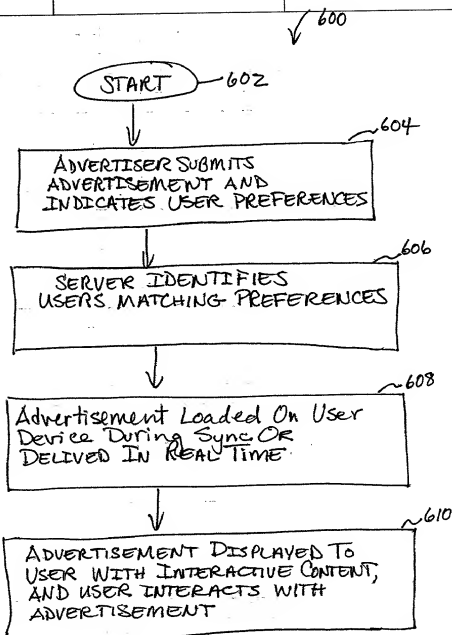 600
START 602
604
ADVERTISER SUBMITS
ADVERTISEMENT AND
INDICATES USER PREFERENCES
606
SERVER IDENTIFIES
USERS MATCHING PREFERENCES
608
Advertisement Loaded On User
Device During Sync OR
DELIVED IN REAL TIME
610
ADVERTISEMENT DISPLAYED TO
USER WITH INTERACTIVE CONTENT,
AND USER INTERACTS WITH
ADVERTISEMENT